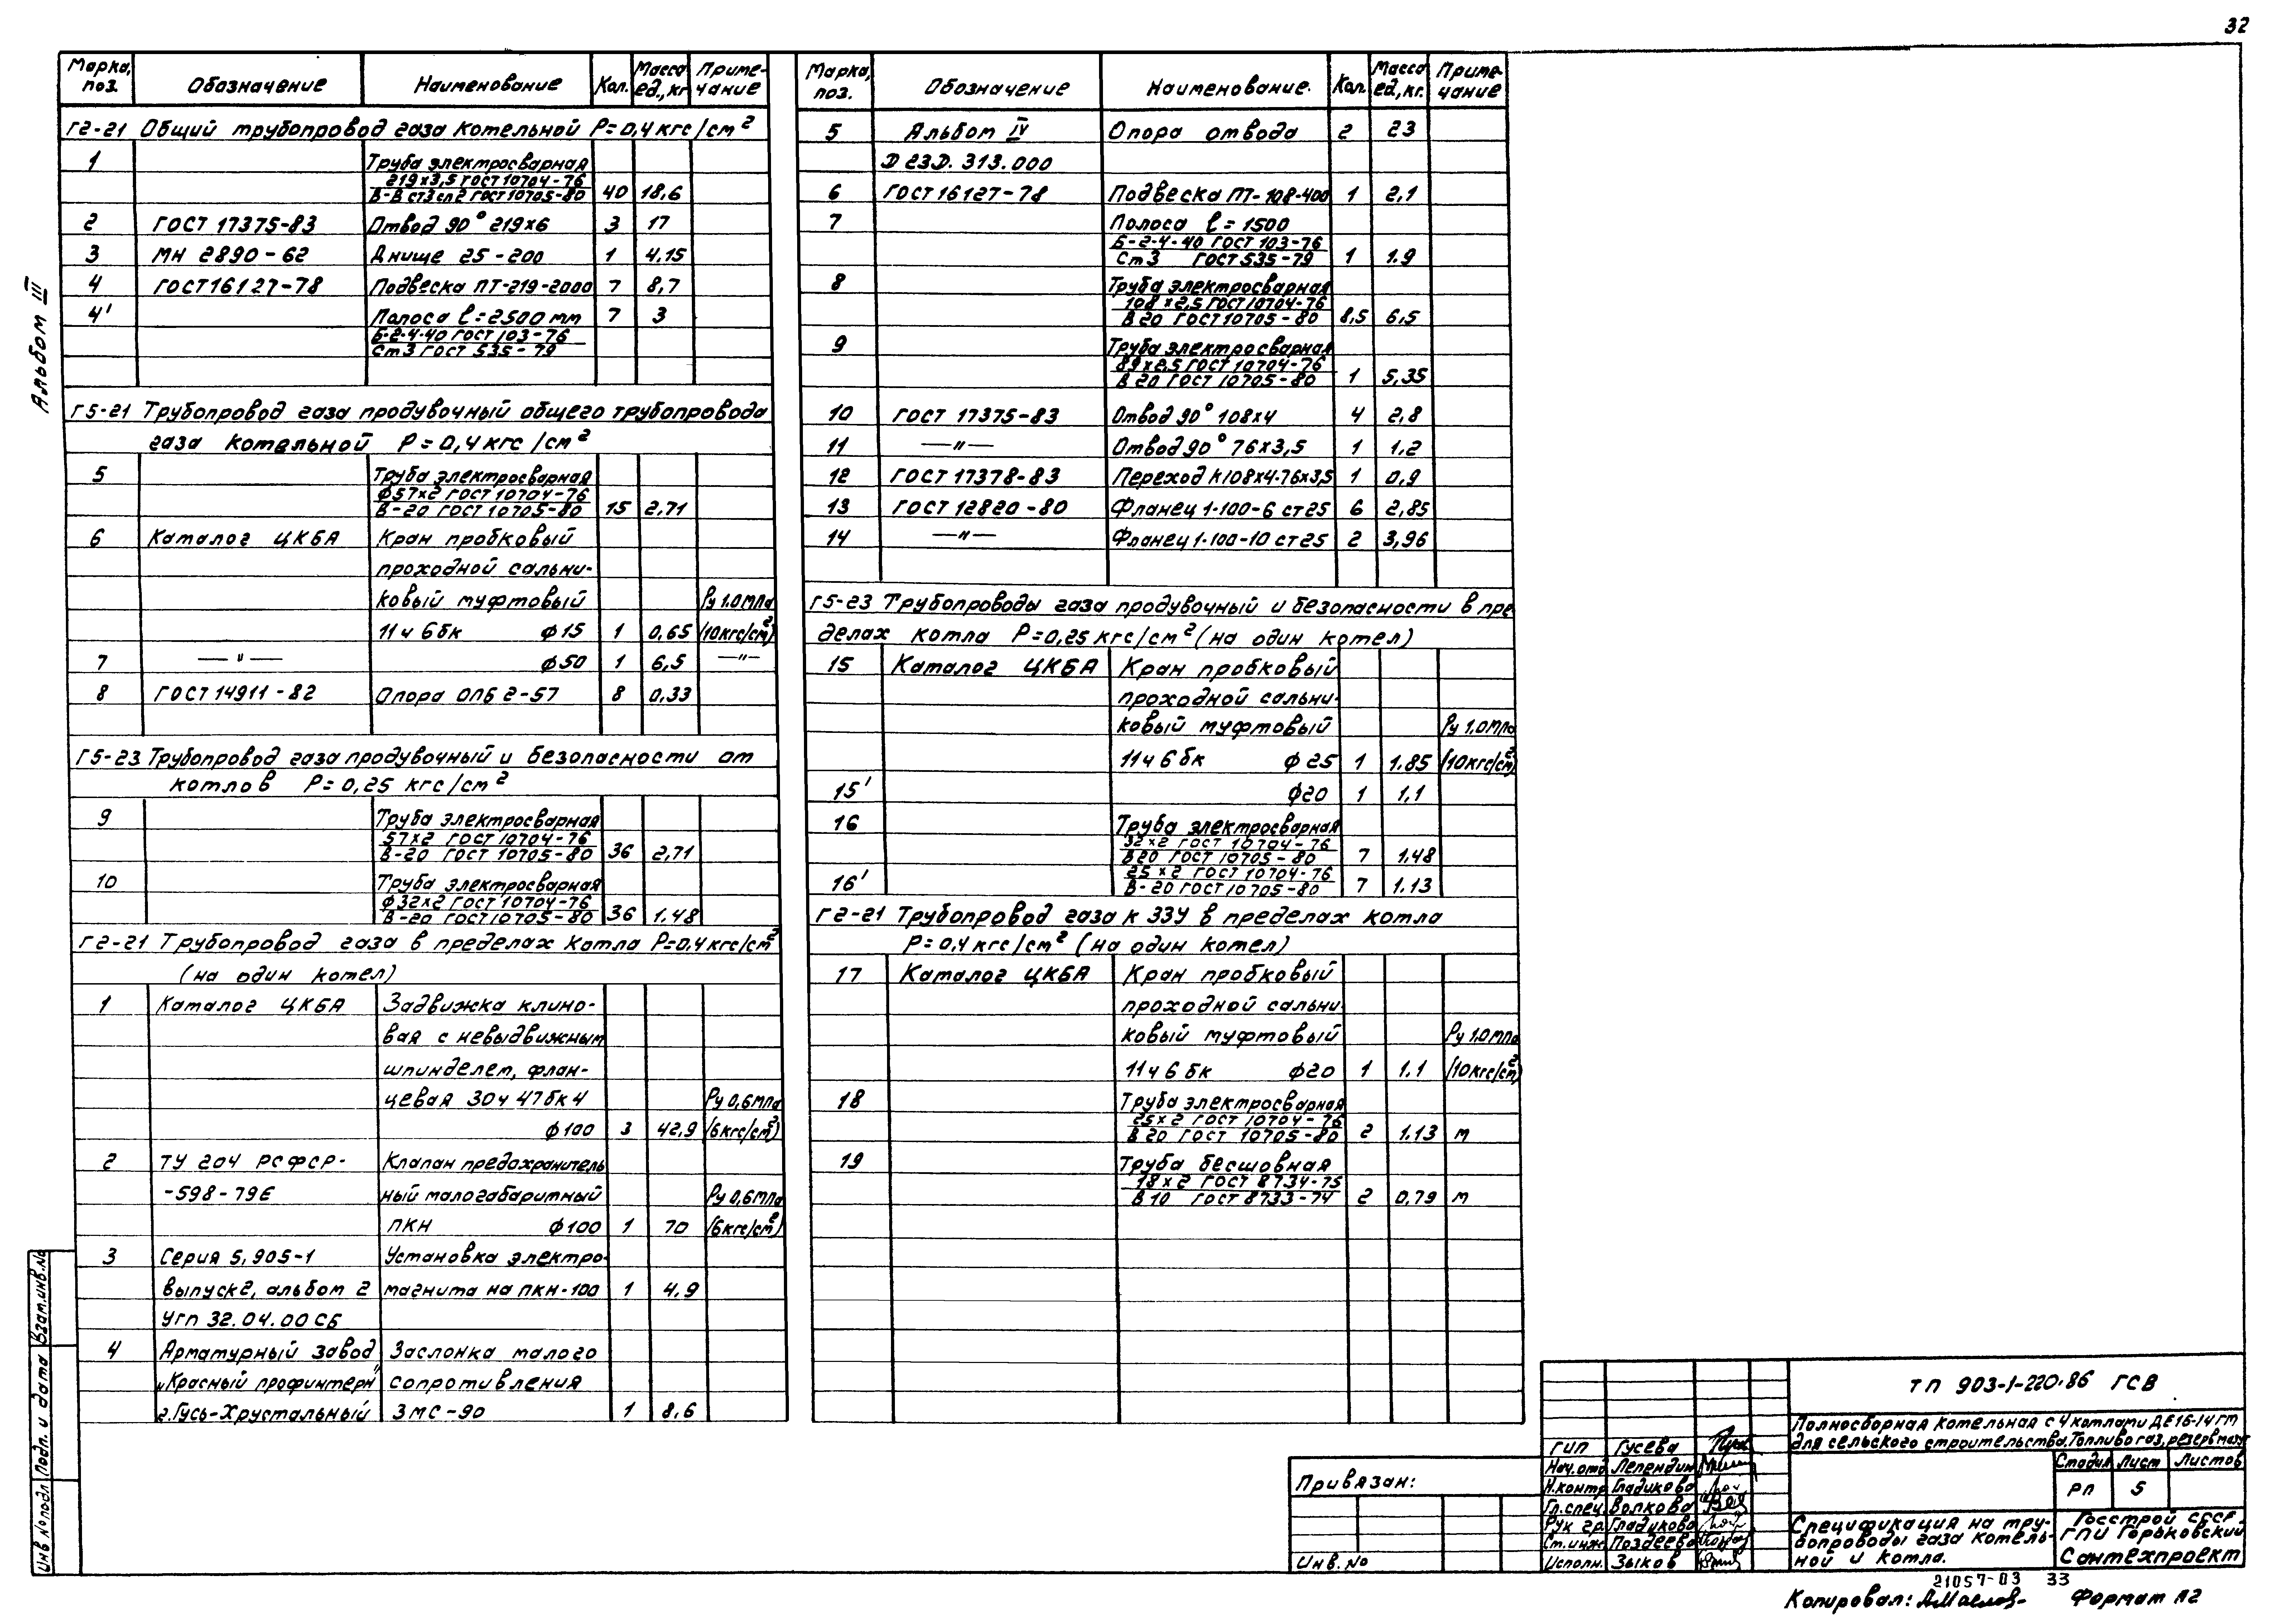 32
Альбом III
Марка, поз. Обозначение Наименование Кол. Масса ед., кг Примечание
Г2-21 Общий трубопровод газа котельной Р=0,4 кгс/см²
1 Труба электросварная
219х3,5 ГОСТ 10704-76
В-В ст3сп2 ГОСТ 10705-80 40 18,6
2 ГОСТ 17375-83 Отвод 90° 219х6 3 17
3 МН 2890-62 Днище 25-200 1 4,15
4 ГОСТ 16127-78 Подвеска ПТ-219-2000 7 8,7
4' Полоса ℓ=2500 мм 7 3
Б-2-4-40 ГОСТ 103-76
Ст3 ГОСТ 535-79
Г5-21 Трубопровод газа продувочный общего трубопровода
газа котельной Р=0,4 кгс/см²
5 Труба электросварная
ф57х2 ГОСТ 10704-76
В-20 ГОСТ 10705-80 15 2,71
6 Каталог ЦКБА Кран пробковый
проходной сальни-
ковый муфтовый Ру 1.0МПа
11ч6бк ф15 1 0,65 (10кгс/см²)
7 —"— ф50 1 6,5 —"—
8 ГОСТ 14911-82 Опора ОПБ2-57 8 0,33
Г5-23 Трубопровод газа продувочный и безопасности от
котлов Р=0,25 кгс/см²
9 Труба электросварная
57х2 ГОСТ 10704-76
В-20 ГОСТ 10705-80 36 2,71
10 Труба электросварная
ф32х2 ГОСТ 10704-76
В-20 ГОСТ 10705-80 36 1.48
Г2-21 Трубопровод газа в пределах котла Р=0,4 кгс/см²
(на один котел)
1 Каталог ЦКБА Задвижка клино-
вая с невыдвижным
шпинделем, флан-
цевая 30ч47бк4 Ру 0,6МПа
ф100 3 42,9 (6кгс/см²)
2 ТУ 204 РСФСР- Клапан предохранитель
-598-79Е ный малогабаритный Ру 0,6МПа
ПКН ф100 1 70 (6кгс/см²)
3 Серия 5,905-1 Установка электро-
выпуск2, альбом 2 магнита на ПКН-100 1 4,9
УГП 32.04.00СБ
4 Арматурный завод Заслонка малого
„Красный профинтерн" сопротивления
г.Гусь-Хрустальный ЗМС-90 1 8,6
Марка, поз. Обозначение Наименование. Кол. Масса ед., кг. Примечание
5 Альбом IV Опора отвода 2 23
Д 23Д. 313.000
6 ГОСТ 16127-78 Подвеска ПТ-108-400 1 2,1
7 Полоса ℓ=1500
Б-2-4-40 ГОСТ 103-76
Ст3 ГОСТ 535-79 1 1.9
8 Труба электросварная
108х2,5 ГОСТ 10704-76
В20 ГОСТ 10705-80 8,5 6,5
9 Труба электросварная
89х2,5 ГОСТ 10704-76
В20 ГОСТ 10705-80 1 5,35
10 ГОСТ 17375-83 Отвод 90° 108х4 4 2,8
11 —"— Отвод 90° 76х3,5 1 1,2
12 ГОСТ 17378-83 Переход К108х4-76х3,5 1 0,9
13 ГОСТ 12820-80 Фланец 1-100-6 ст25 6 2,85
14 —"— Фланец 1-100-10 ст25 2 3,96
Г5-23 Трубопроводы газа продувочный и безопасности в пре
делах котла Р=0,25 кгс/см² (на один котел)
15 Каталог ЦКБА Кран пробковый
проходной сальни-
ковый муфтовый Ру 1.0МПа
11ч6бк ф25 1 1.85 (10кгс/см²)
15' ф20 1 1.1
16 Труба электросварная
32х2 ГОСТ 10704-76
В20 ГОСТ 10705-80 7 1.48
16' 25х2 ГОСТ 10704-76
В-20 ГОСТ 10705-80 7 1.13
Г2-21 Трубопровод газа к ЗЗУ в пределах котла
Р=0,4 кгс/см² (на один котел)
17 Каталог ЦКБА Кран пробковый
проходной сальни-
ковый муфтовый Ру 1.0МПа
11ч6бк ф20 1 1.1 (10кгс/см²)
18 Труба электросварная
25х2 ГОСТ 10704-76
В20 ГОСТ 10705-80 2 1.13 м
19 Труба бесшовная
18х2 ГОСТ 8734-75
В10 ГОСТ 8733-74 2 0,79 м
Инв.№подл Подп. и дата Взам.инв.№
Привязан:
Инв.№
ТП 903-1-220.86 ГСВ
Полносборная котельная с 4 котлами ДЕ16-14ГМ
для сельского строительства.Топливо газ, резерв мазут
ГИП Гусева
Нач.отд Лепендин
Н.контр Гладикова
Гл.спец. Волкова
Рук гр. Гладикова
Ст.инж Поздеева
Исполн. Зыков
Стадия Лист Листов
РП 5
Спецификация на тру-
бопроводы газа котель-
ной и котла.
Госстрой СССР
ГПИ Горьковский
Сантехпроект
21057-03 33
Копировал: Формат А2